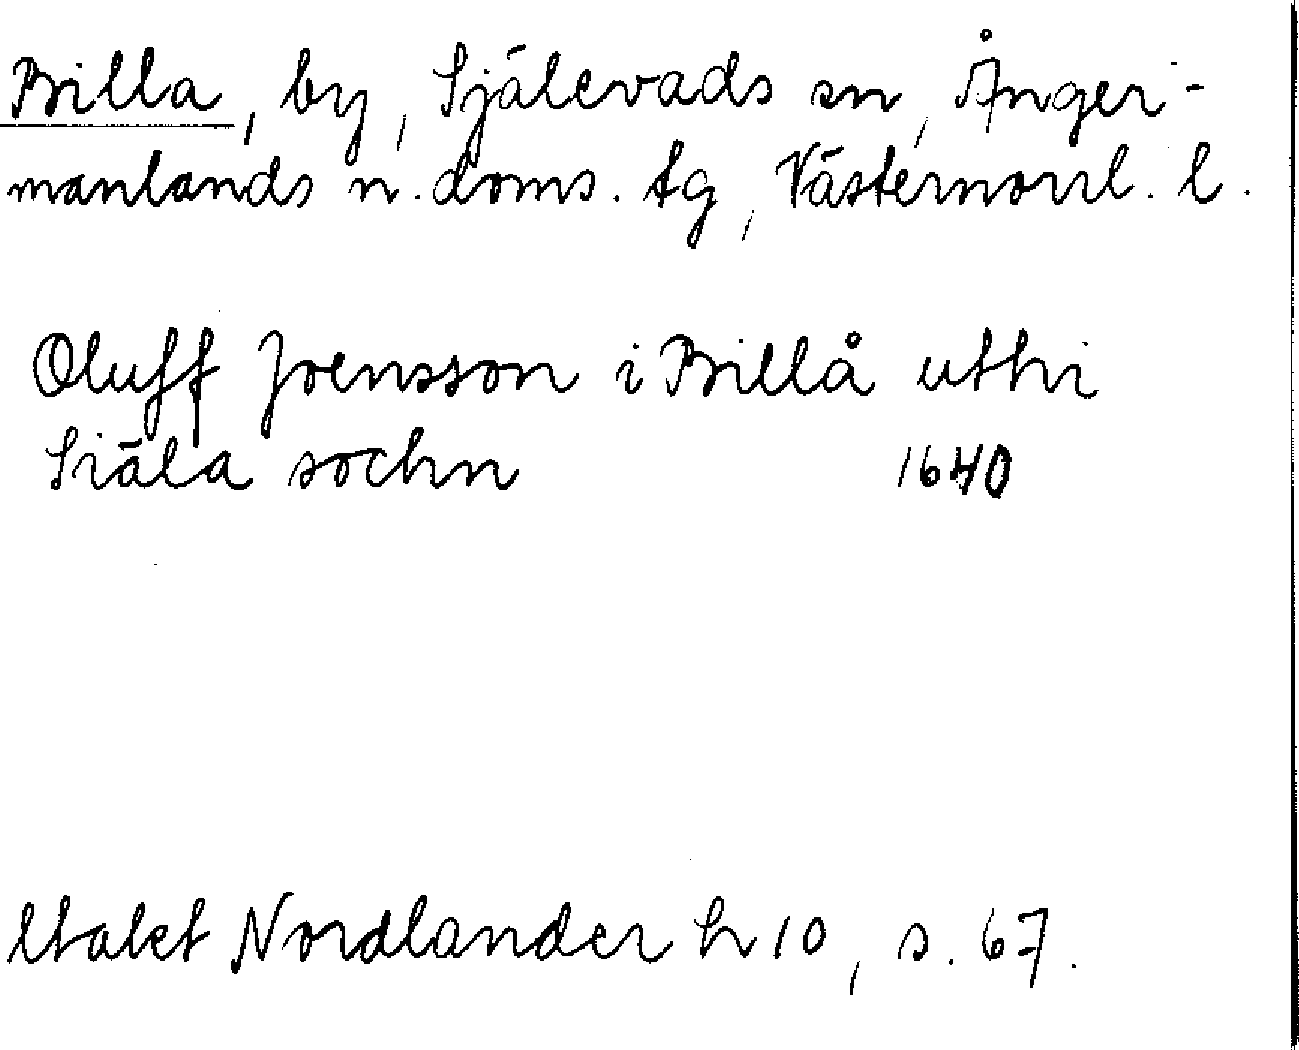 Billa, by, Själevads sn, Ånger-
manlands n. doms. tg, Västernorrl. l.
Oluff Joensson i Billå uthi
Siäla sochn 1640
Nordlander h 10, s. 67.